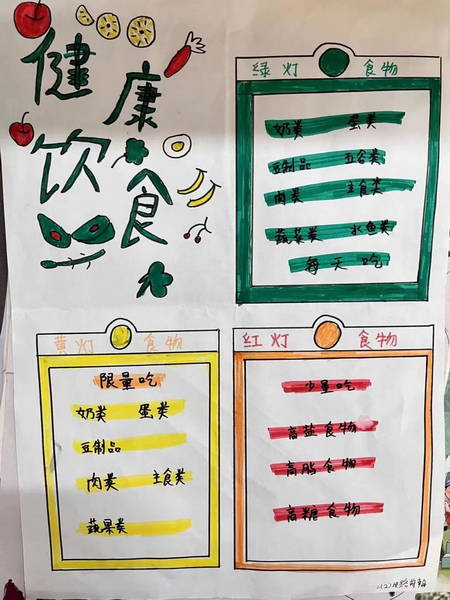 健康
饮食
绿灯 食物
奶类 蛋类
豆制品 五谷类
肉类 主食类
蔬菜类
每天吃
黄灯 食物
限量吃
奶类 蛋类
豆制品
肉类 主食类
蔬果类
红灯 食物
少量吃
高盐食物
高脂食物
高糖食物